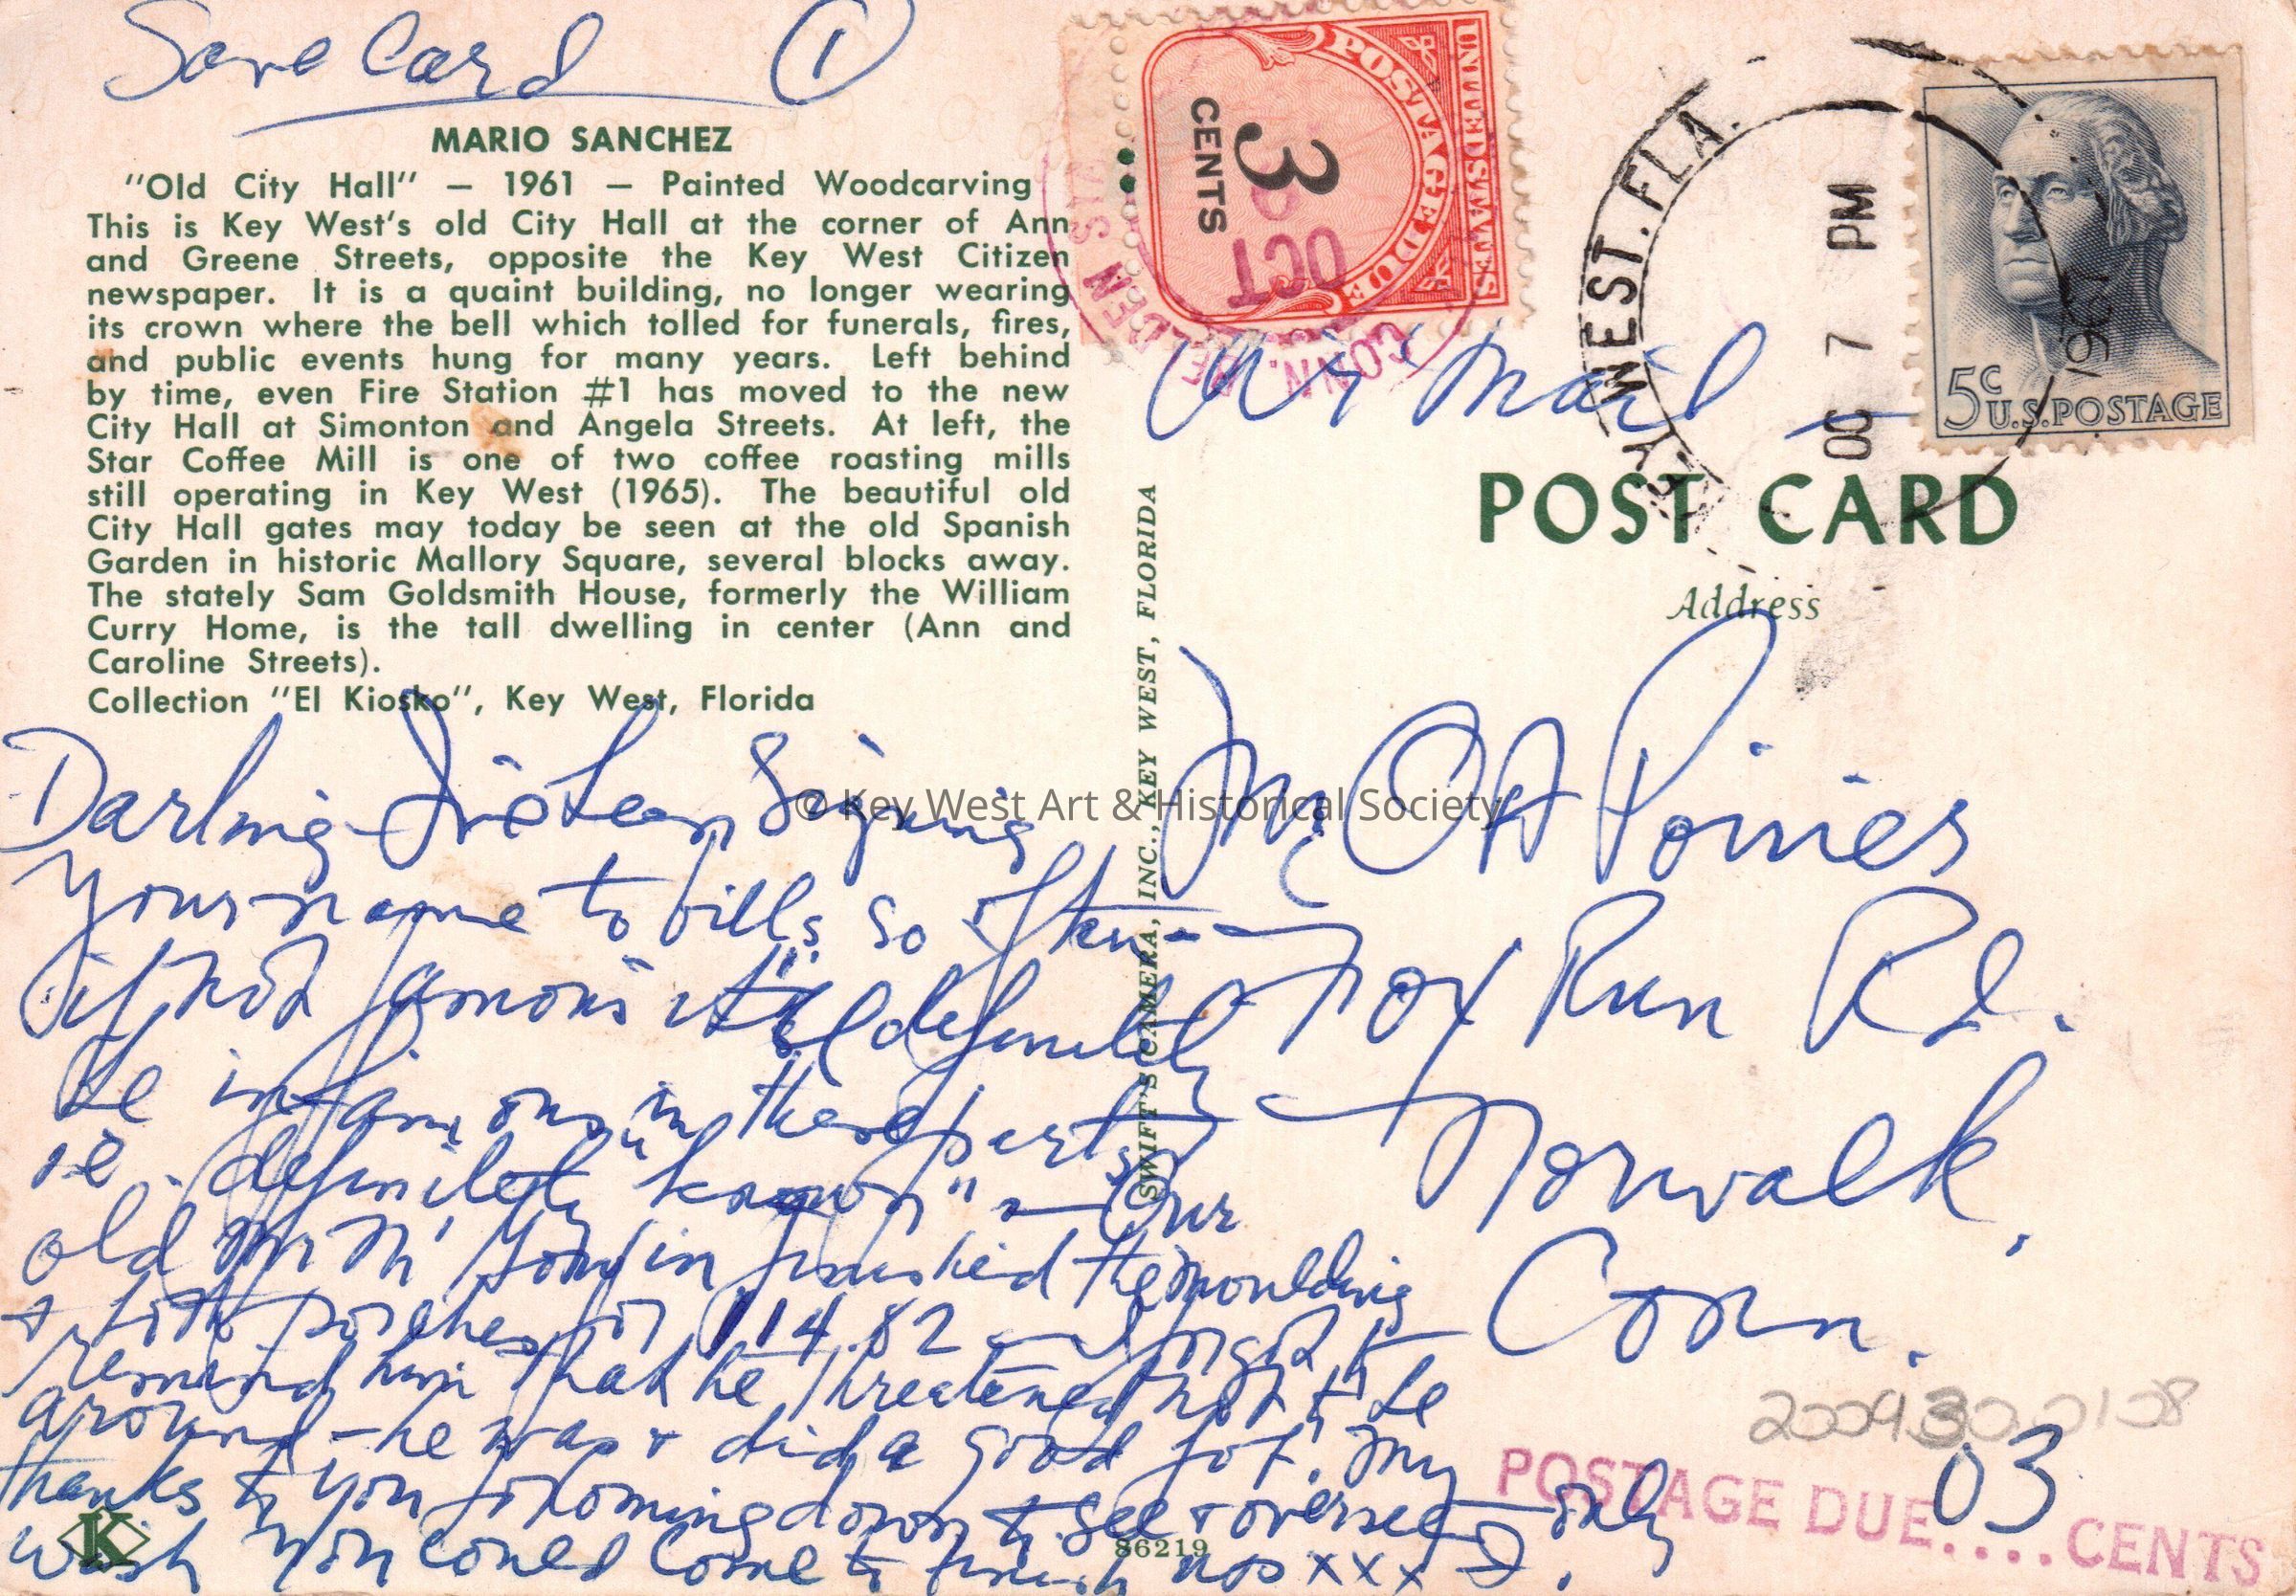 Save Card 1
MARIO SANCHEZ
"Old City Hall" — 1961 — Painted Woodcarving
This is Key West's old City Hall at the corner of Ann
and Greene Streets, opposite the Key West Citizen
newspaper. It is a quaint building, no longer wearing
its crown where the bell which tolled for funerals, fires,
and public events hung for many years. Left behind
by time, even Fire Station #1 has moved to the new
City Hall at Simonton and Angela Streets. At left, the
Star Coffee Mill is one of two coffee roasting mills
still operating in Key West (1965). The beautiful old
City Hall gates may today be seen at the old Spanish
Garden in historic Mallory Square, several blocks away.
The stately Sam Goldsmith House, formerly the William
Curry Home, is the tall dwelling in center (Ann and
Caroline Streets).
Collection "El Kiosko", Key West, Florida
Darling Signing
Your name to bills so often--
if not famous it'll definitely
be infamous in these parts
ie. definitely "known" — Our
old Mr finished the moulding
+ both porches for 114.82 — I forgot to
remind him that he threatened not to be
around — he was + did a good job! My
thanks to you for coming down to see + oversee — only
wish you could come to finish nos xxx J.
UNITED STATES
POSTAGE DUE
3
CENTS
OCT
CONN.
KEY WEST. FLA.
OC 7 PM
1967
5c U.S. POSTAGE
Air Mail
POST CARD
Address
SWIFT'S CAMERA, INC., KEY WEST, FLORIDA
Fox Run Rd.
Norwalk,
Conn.
2009300.0108
03
POSTAGE DUE....CENTS
K
86219
© Key West Art & Historical Society